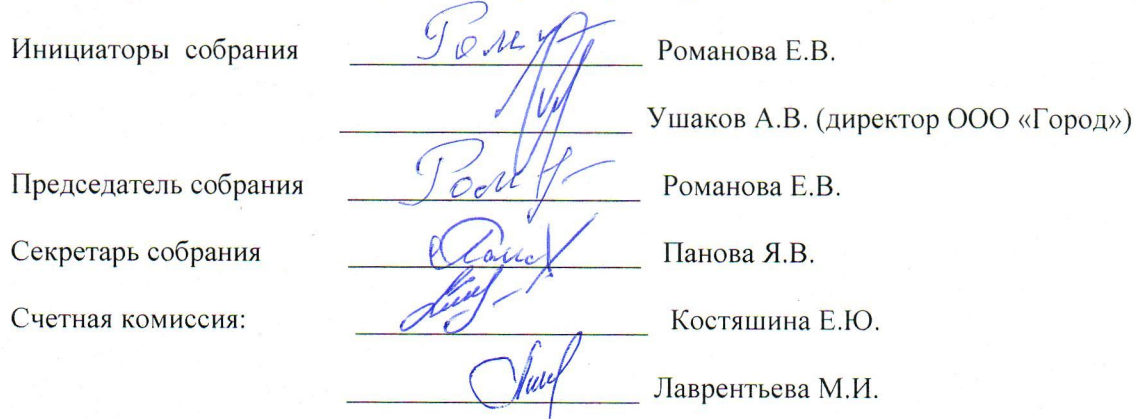 Инициаторы собрания Романова Е.В.
Ушаков А.В. (директор ООО «Город»)
Председатель собрания Романова Е.В.
Секретарь собрания Панова Я.В.
Счетная комиссия: Костяшина Е.Ю.
Лаврентьева М.И.